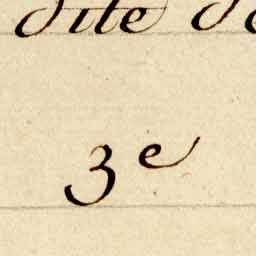 dite d
3e